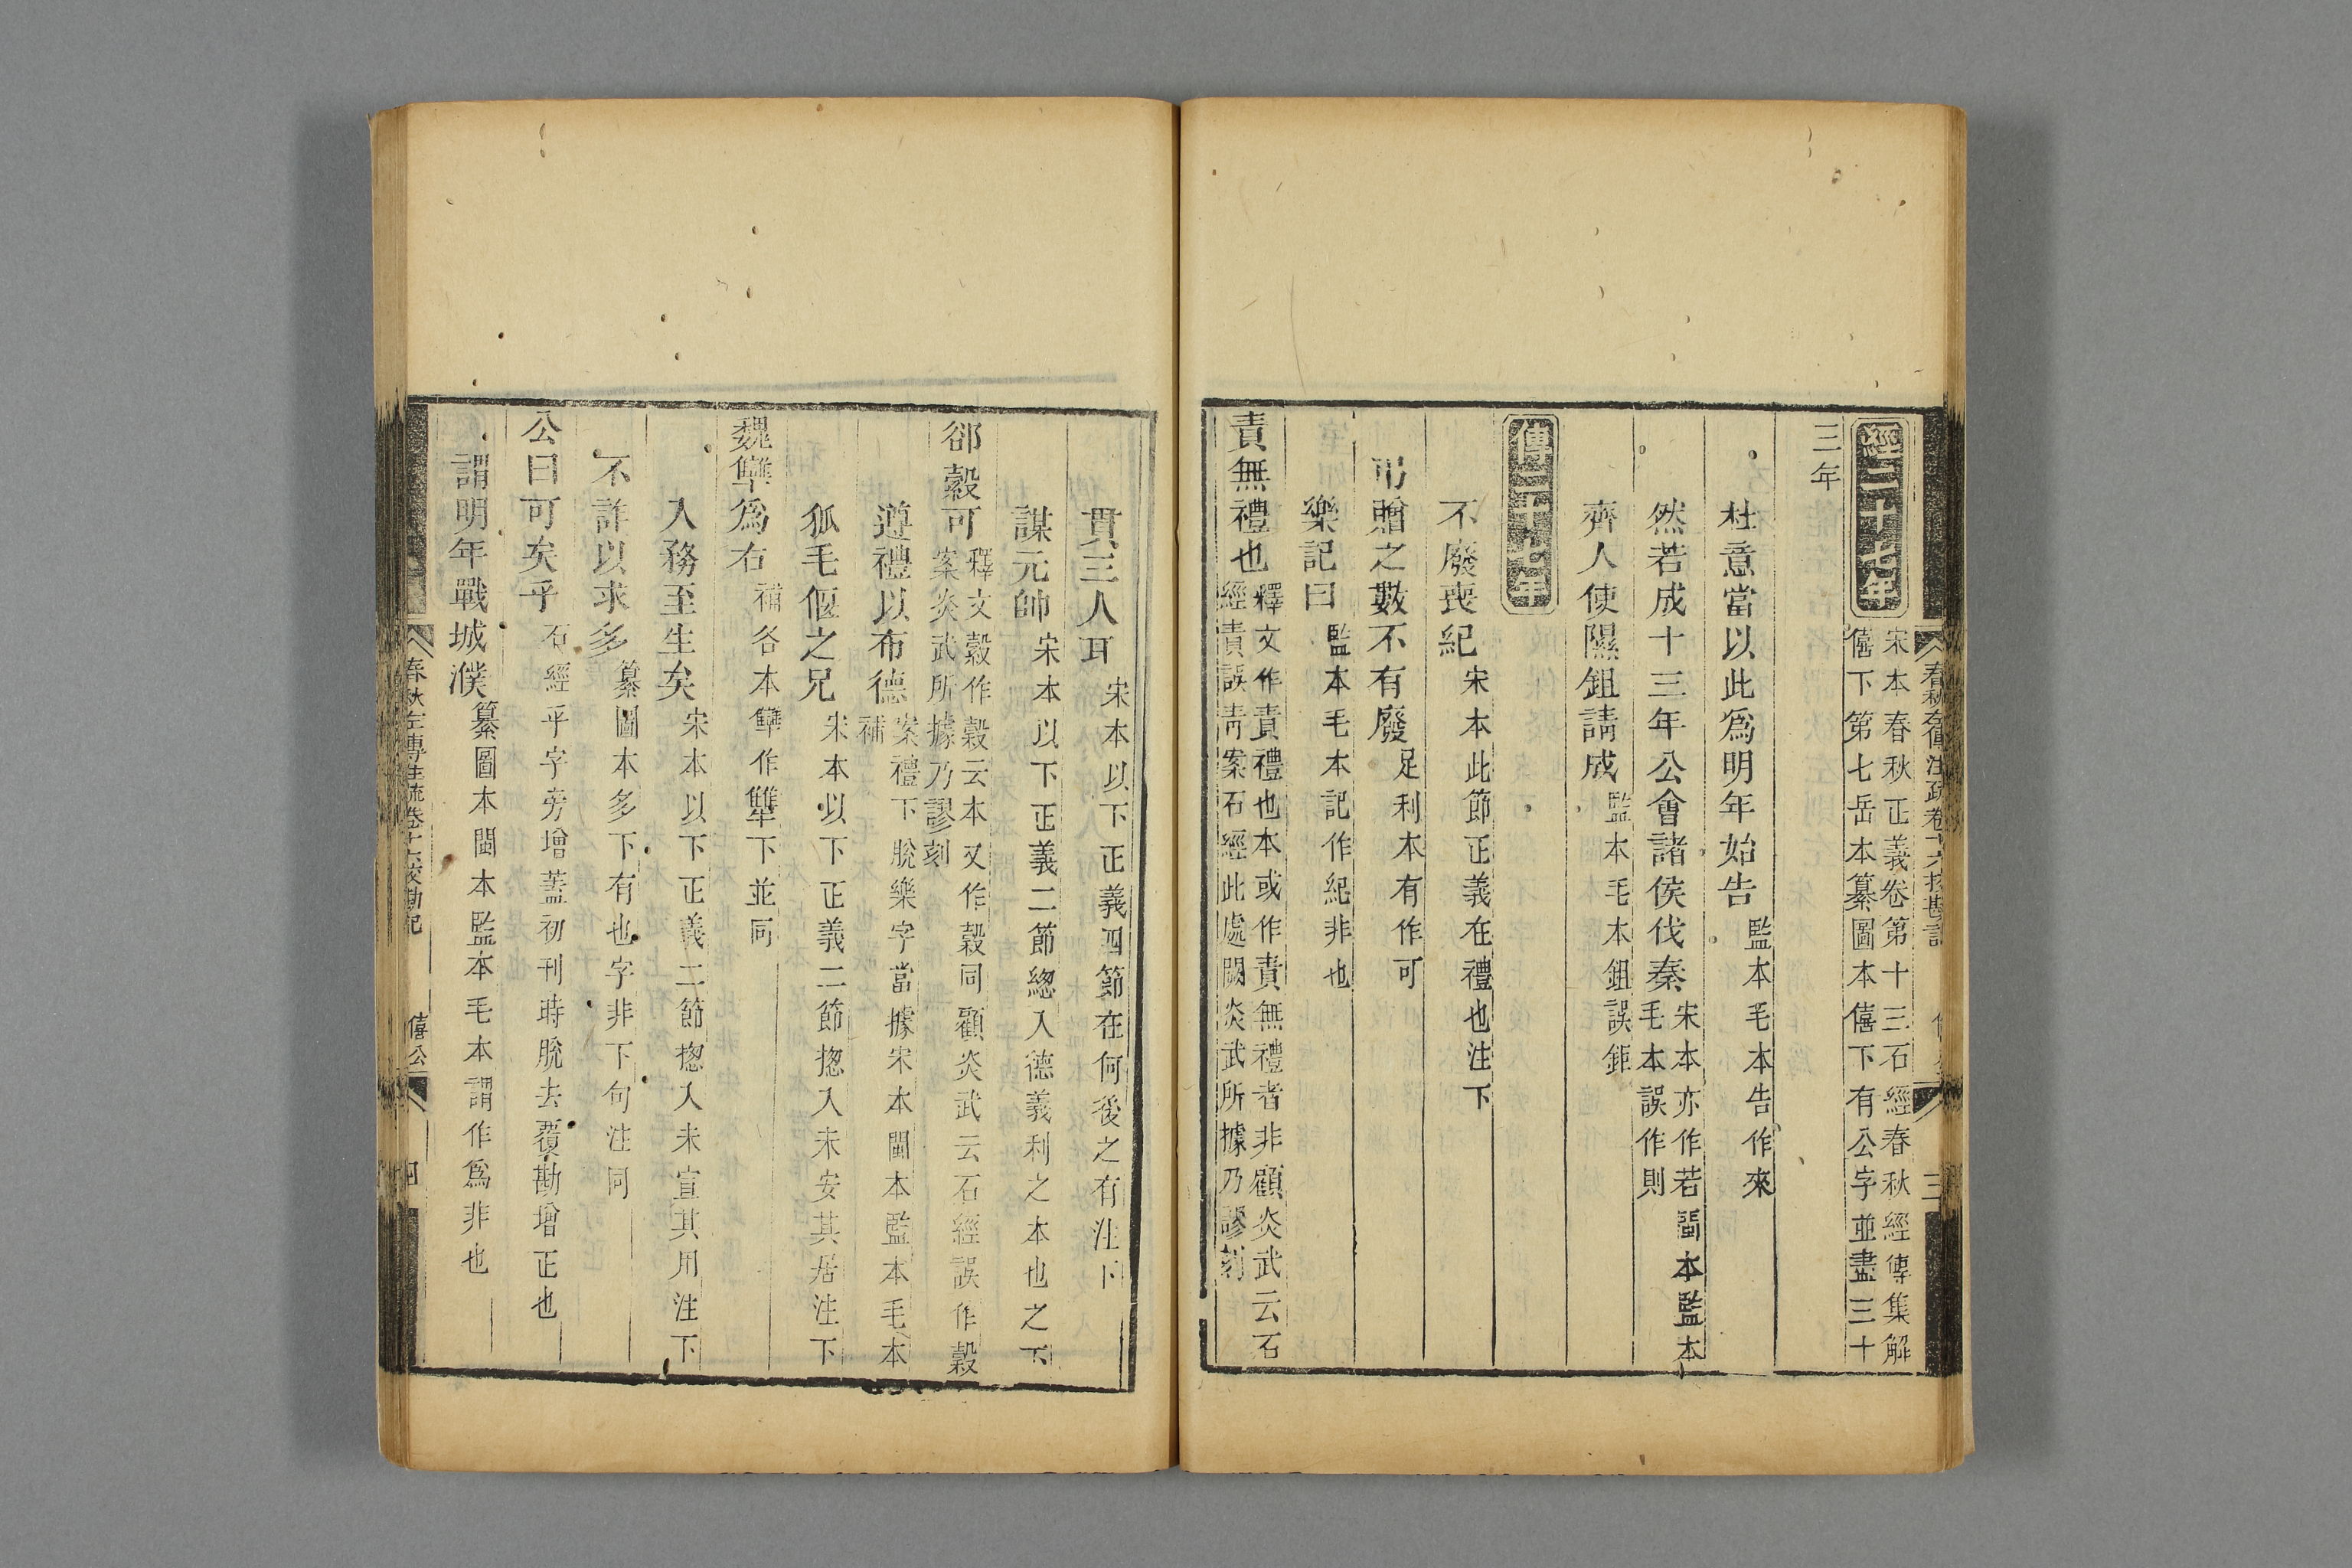 經二十七年 宋本春秋正義卷第十三石經春秋經傳集解僖下第七岳本纂圖本僖下有公字並盡三十
三年
杜意當以此爲明年始告 監本毛本告作來
然若成十三年公會諸侯伐秦 宋本亦作若閩本監本毛本誤作則
齊人使隰鉏請成 監本毛本鉏誤鉅
傳二十七年
不廢喪紀 宋本此節正義在禮也注下
弔贈之數不有廢 足利本有作可
樂記曰 監本毛本記作紀非也
責無禮也 釋文作責禮也本或作責無禮者非顧炎武云石經責誤靑案石經此處闕炎武所據乃謬刻
貫三人耳 宋本以下正義四節在何後之有注下
謀元帥 宋本以下正義二節緫入德義利之本也之下
郤縠可 釋文縠作穀云本又作縠同顧炎武云石經誤作穀案炎武所據乃謬刻
遵禮以布德 案禮下脫樂字當據宋本閩本監本毛本補
狐毛偃之兄 宋本以下正義二節揔入未安其居注下
魏犨爲右 補各本犨作犫下並同
入務至生矣 宋本以下正義二節揔入未宣其用注下
不詐以求多 纂圖本多下有也字非下句注同
公曰可矣乎 石經乎字旁增蓋初刊時脫去覆勘增正也
謂明年戰城濮 纂圖本閩本監本毛本謂作爲非也
春秋左傳注疏卷十六校勘記 僖公 四